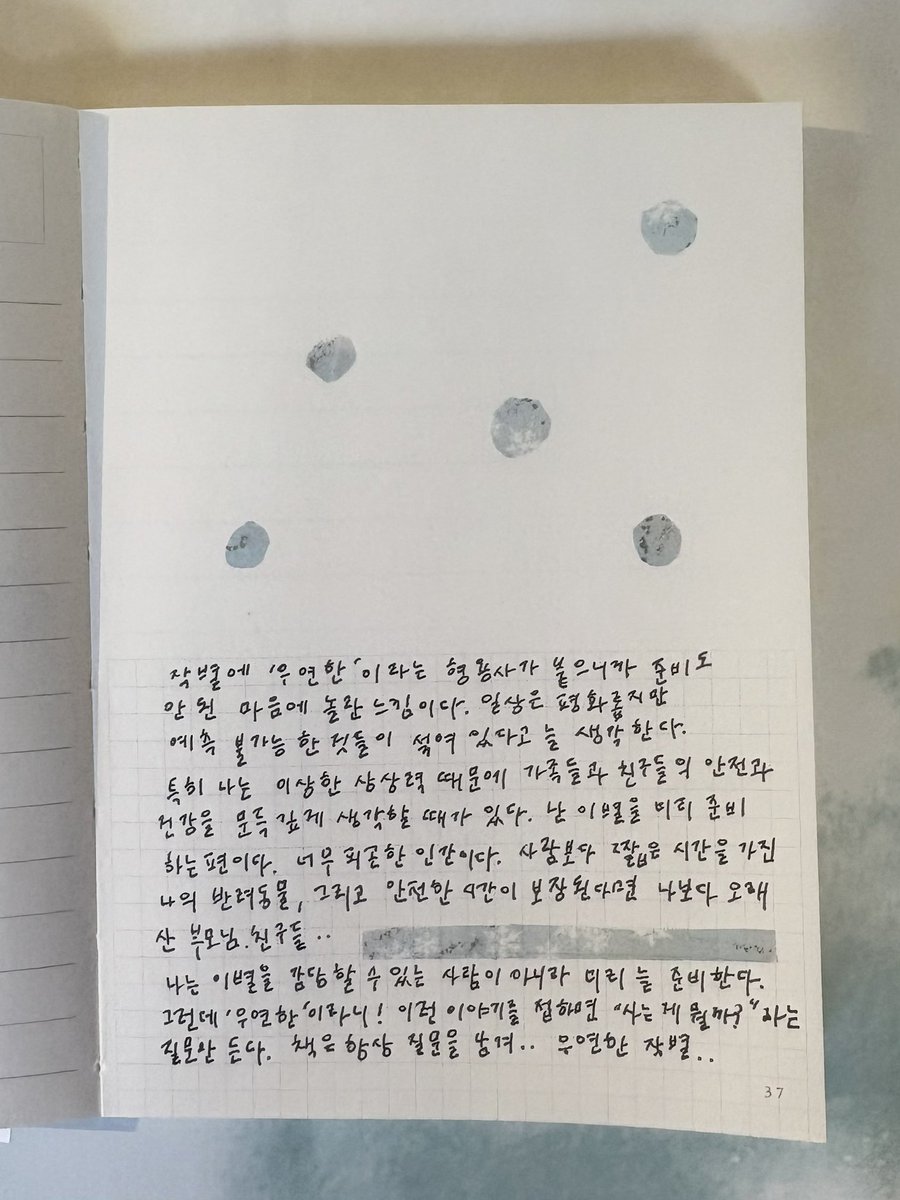 작별에 '우연한'이라는 형용사가 붙으니까 준비도
안 된 마음에 놀란 느낌이다. 일상은 평화롭지만
예측 불가능한 것들이 섞여 있다고 늘 생각한다.
특히 나는 이상한 상상력 때문에 가족들과 친구들의 안전과
건강을 문득 깊게 생각할 때가 있다. 난 이별을 미리 준비
하는 편이다. 너무 피곤한 인간이다. 사람보다 짧은 시간을 가진
나의 반려동물, 그리고 안전한 시간이 보장된다면 나보다 오래
산 부모님.친구들..
나는 이별을 감당할 수 있는 사람이 아니라 미리 늘 준비한다.
그런데 '우연한'이라니! 이런 이야기를 접하면 "사는 게 뭘까?"라는
질문만 든다. 책은 항상 질문을 남겨.. 우연한 작별..
37